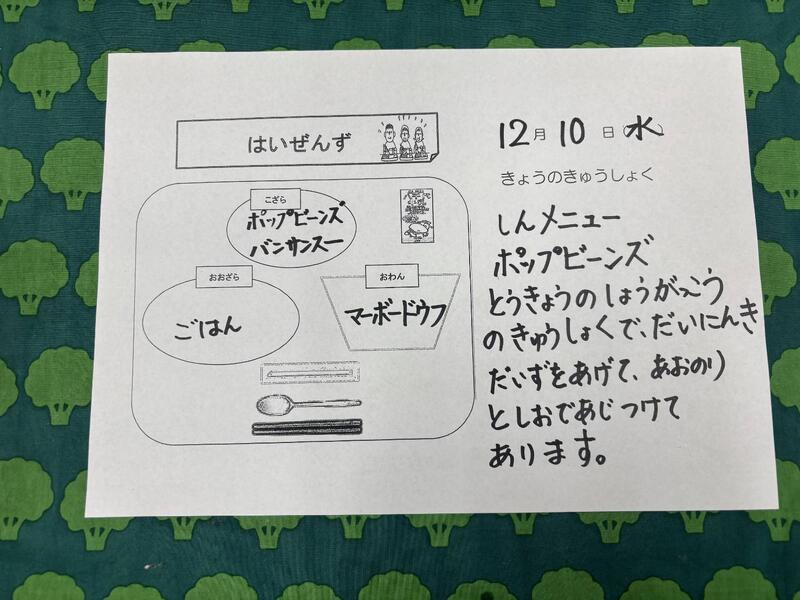 はいぜんず
こざら
ポップビーンズ
バンサンスー
おおざら
ごはん
おわん
マーボードウフ
12月10日水
きょうのきゅうしょく
しんメニュー
ポップビーンズ
とうきょうのしょうがっこう
のきゅうしょくで、だいにんき
だいずをあげて、あおのり
としおであじつけて
あります。